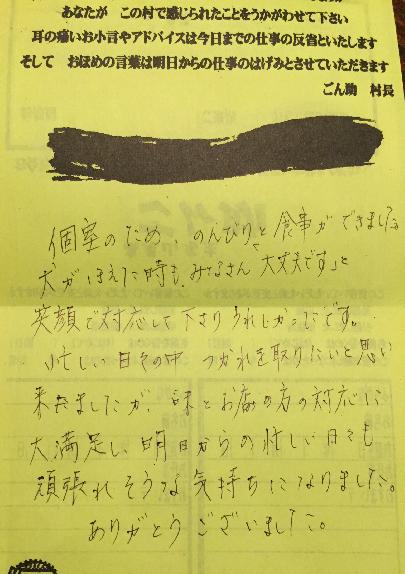 あなたが この村で感じられたことをうかがわせて下さい
耳の痛いお小言やアドバイスは今日までの仕事の反省といたします
そして おほめの言葉は明日からの仕事のはげみとさせていただきます
ごん助 村長
個室のため、のんびりと食事ができました
犬がほえた時も、みなさん「大丈夫です」と
笑顔で対応して下さりうれしかったです。
忙しい日々の中 つかれを取りたいと思い
来ましたが、味とお店の方の対応に
大満足し、明日からの忙しい日々も
頑張れそうな気持ちになりました。
ありがとうございました。